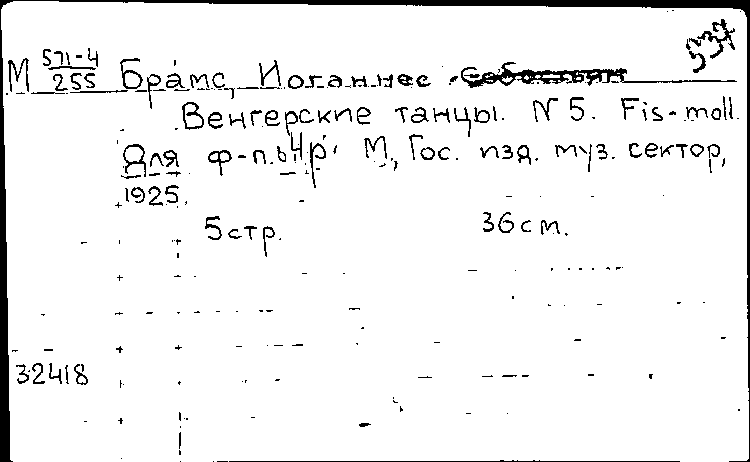 537
М 571-4/255 Брамс, Иоганнес
Венгерские танцы. N 5. Fis-moll.
Для ф-п. М., Гос. изд. муз. сектор,
1925.
5 стр. 36 см.
32418